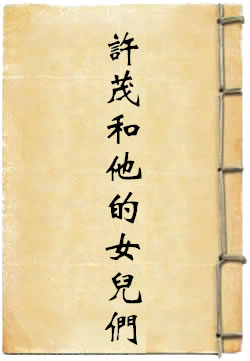 許茂和他的女兒們